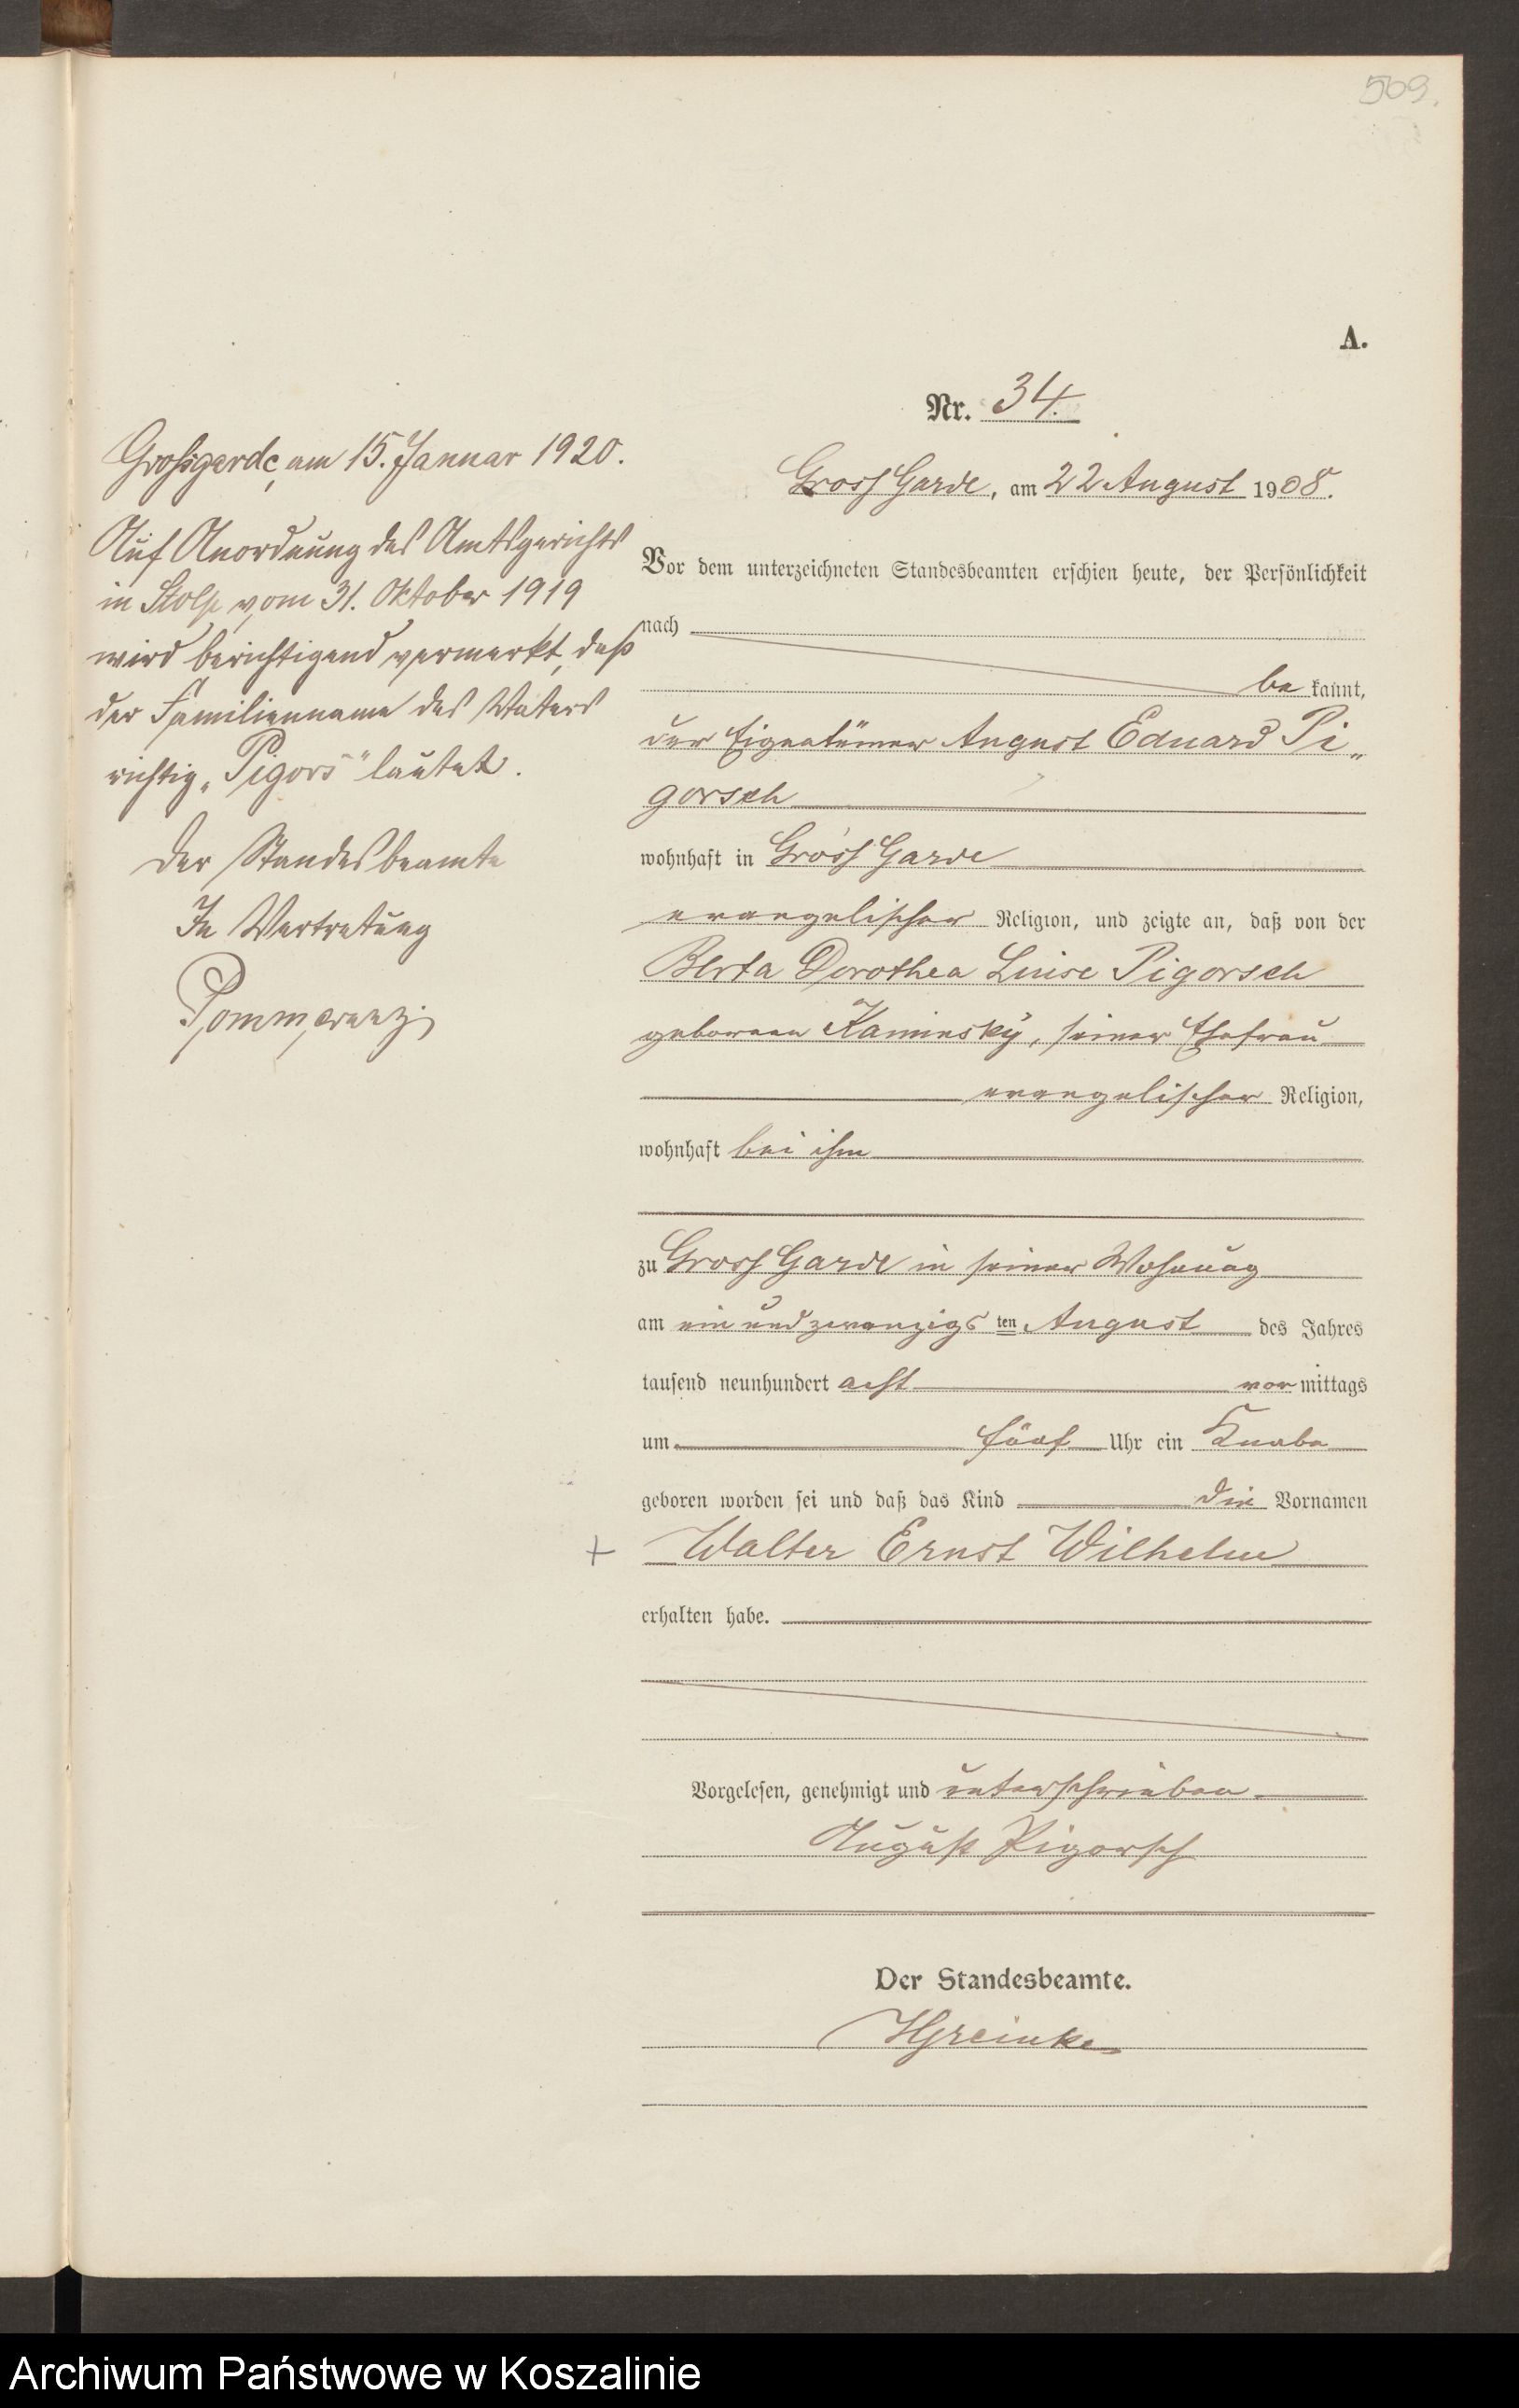 509.
A.
Nr. 34.
Gross Garde, am 22 August 1908.
Vor dem unterzeichneten Standesbeamten erschien heute, der Persönlichkeit
nach
be kannt,
der Eigentümer August Eduard Pi„
gorsch
wohnhaft in Gross Garde
evangelischer Religion, und zeigte an, daß von der
Berta Dorothea Luise Pigorsch
geborenen Kaminsky, seiner Ehefrau
evangelischer Religion,
wohnhaft bei ihm
zu Gross Garde in seiner Wohnung
am ein und zwanzigs ten August des Jahres
tausend neunhundert acht vor mittags
um fünf Uhr ein Knabe
geboren worden sei und daß das Kind die Vornamen
+ Walter Ernst Wilhelm
erhalten habe.
Vorgelesen, genehmigt und unterschrieben
August Pigorsch
Der Standesbeamte.
Großgarde, am 15. Januar 1920.
Auf Anordnung des Amtsgerichts
in Stolp vom 31. Oktober 1919
wird berichtigend vermerkt, daß
der Familienname des Vaters
richtig „Pigors“ lautet.
Der Standesbeamte
In Vertretung
Pommerenz
Archiwum Państwowe w Koszalinie